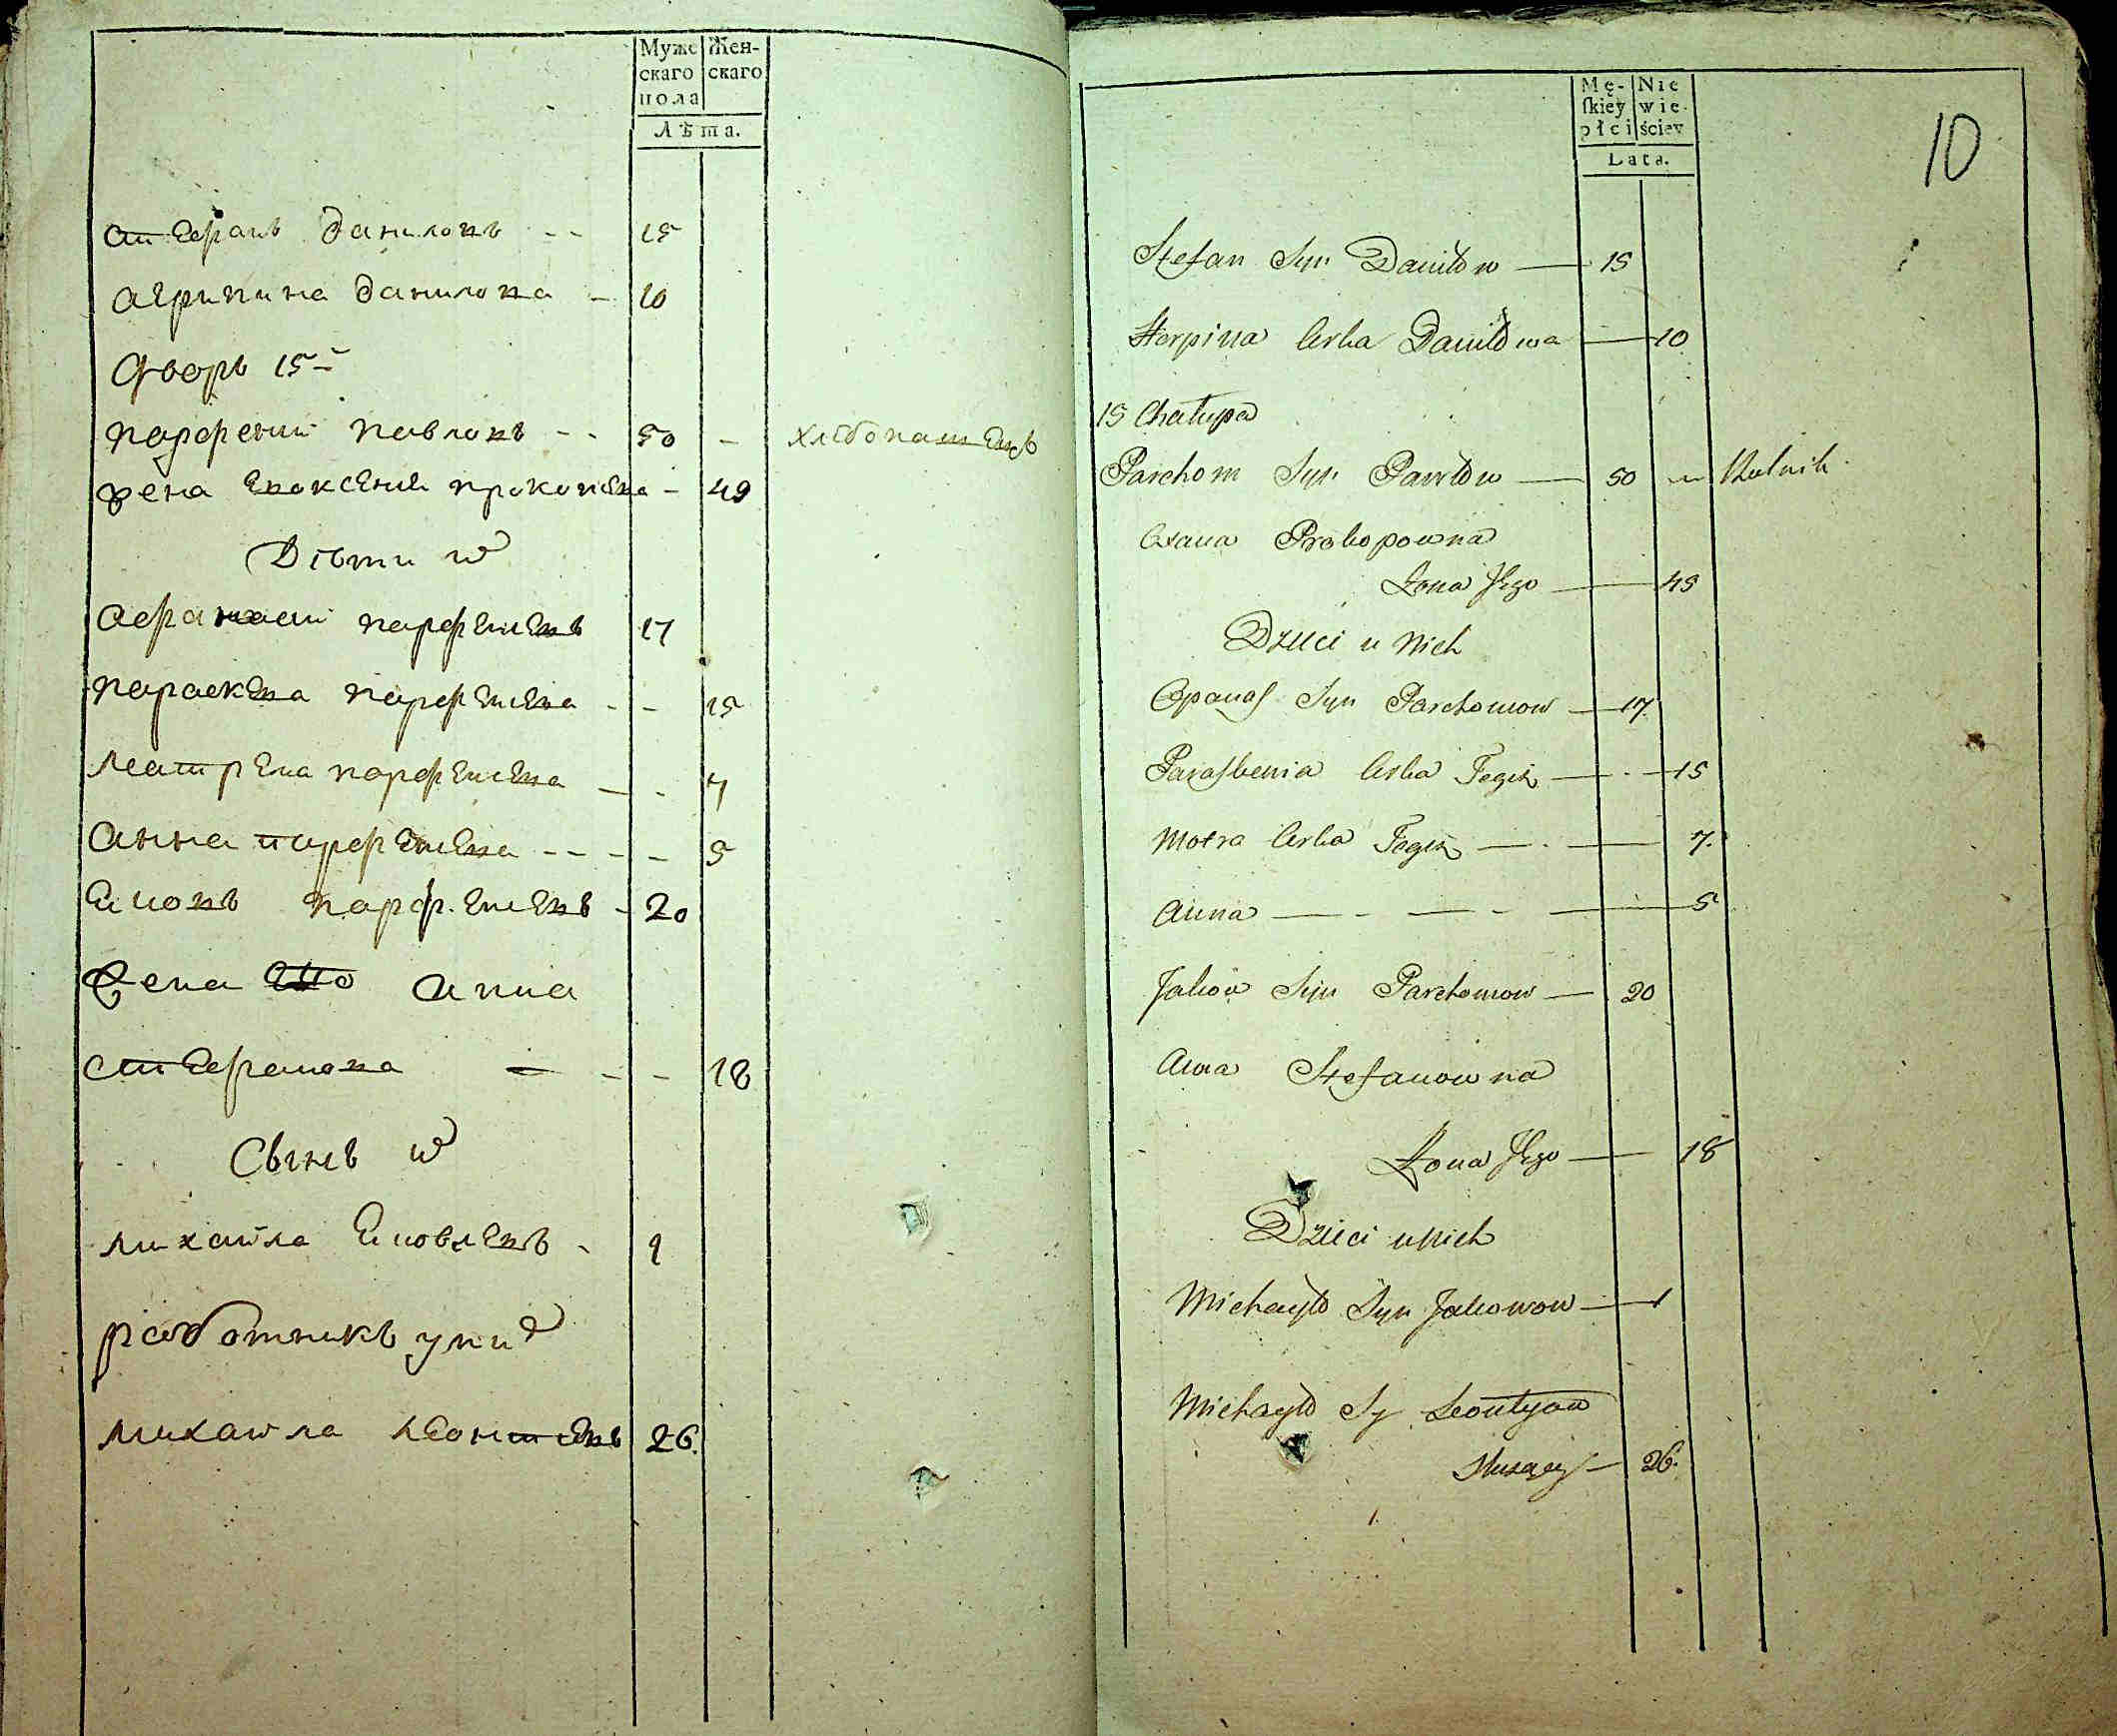 Муже
скаго
пола
Жен-
скаго
Лѣта.
Стефанъ Даниловъ -- 15
Агрипина Данилова - 10
Дворъ 15й
Парфений Павловъ -- 50 - хлебопашецъ
жена Прокопева - 49
Дѣти
Афанасий Парфениевъ 17
Параскева Парфениева -- 15
Матрена Парфениева -- 7
Анна Парфениева ---- 5
Парфениевъ - 20
жена ево Анна
Стефанова --- 18
Сынъ
Михайла - 1
работникъ у ни
Михайла Леонтиевъ 26.
10
Mę-
ſkiey
płci
Nie
wie-
ściey
Lata.
Stefan Syn Daniłow — 15
Horpina Daniłowa — 10
15 Chałupa
Parchom Syn Pawłow — 50 Rolnik.
Oxana Prokopowna
Żona Jego — 49
Dzieci u Nich
Opanas Syn Parchomow — 17.
Paraskewia Corka Tegoż — 15
Motra Corka Tegoż — 7.
Anna — 5
Jakow Syn Parchomow — 20
Anna Stefanowna
Żona Jego — 18
Dzieci u Nich
Michayło Syn Jakowow — 1
Michayło Sy Leontyow
Służący — 26.